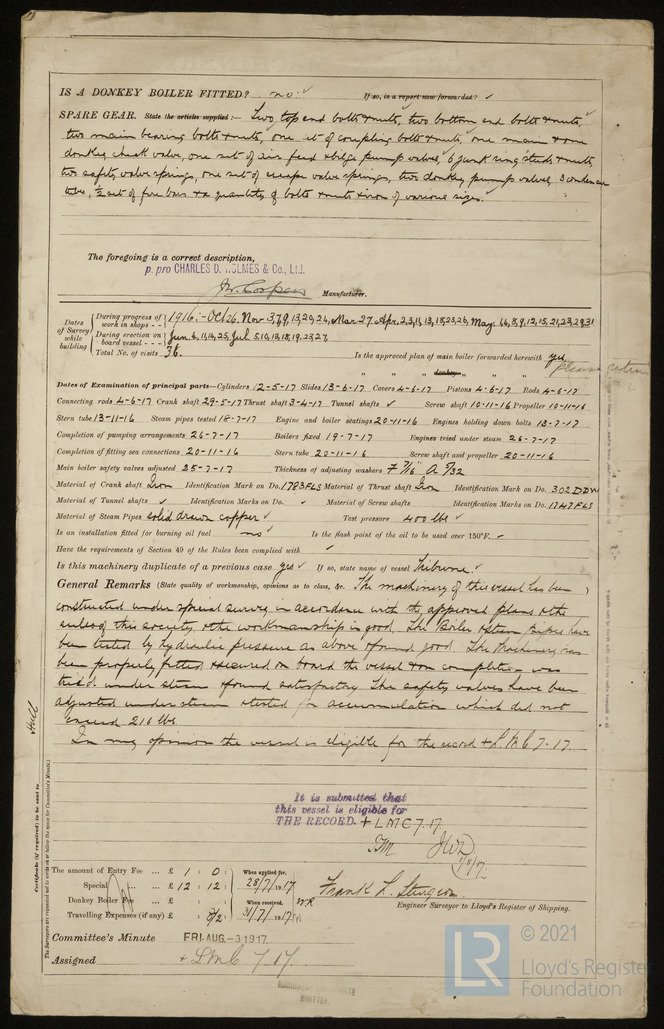 IS A DONKEY BOILER FITTED? no If so, is a report now forwarded?
SPARE GEAR. State the articles supplied:— Two, top end bolts & nuts, two bottom end bolts & nuts,
two main bearing bolts & nuts, one set of coupling bolts & nuts, one main & one
donkey check valve, one set of air feed & bilge pump valves, 6 junk ring studs & nuts,
two safety valve springs, one set of escape valve springs, two donkey pump valves, 3 condenser
tubes, ½ set of fire bars & a quantity of bolts & nuts & iron of various sizes.
The foregoing is a correct description,
p. pro CHARLES D. HOLMES & Co., Ltd.
Manufacturer.
Dates of Survey while building
During progress of work in shops - - 1916:- Oct 26. Nov 3,7,9,13,20,24, Mar 27. Apr. 2,3,11,13,18,23,26, May
During erection on board vessel - - - Jun 4,11,14,25, Jul 5,10,13,18,19,23,27.
Total No. of visits 36. Is the approved plan of main boiler forwarded herewith yes
" " " donkey " " "
please return
Dates of Examination of principal parts—Cylinders 12-5-17 Slides 13-6-17 Covers 4-6-17 Pistons 4-6-17 Rods 4-6-17
Connecting rods 4-6-17 Crank shaft 29-5-17 Thrust shaft 3-4-17 Tunnel shafts ✓ Screw shaft 10-11-16 Propeller 10-11-16
Stern tube 13-11-16 Steam pipes tested 18-7-17 Engine and boiler seatings 20-11-16 Engines holding down bolts 13-7-17
Completion of pumping arrangements 26-7-17 Boilers fixed 19-7-17 Engines tried under steam 26-7-17
Completion of fitting sea connections 20-11-16 Stern tube 20-11-16 Screw shaft and propeller 20-11-16
Main boiler safety valves adjusted 25-7-17 Thickness of adjusting washers F 7/16 A 5/32
Material of Crank shaft Iron Identification Mark on Do. 1783FLS Material of Thrust shaft Iron Identification Mark on Do. 302DDW
Material of Tunnel shafts ✓ Identification Marks on Do. ✓ Material of Screw shafts Identification Marks on Do. 1747FLS
Material of Steam Pipes solid drawn copper Test pressure 400 lbs
Is an installation fitted for burning oil fuel no Is the flash point of the oil to be used over 150°F.
Have the requirements of Section 49 of the Rules been complied with
Is this machinery duplicate of a previous case yes If so, state name of vessel Tribune.
General Remarks (State quality of workmanship, opinions as to class, &c. The machinery of this vessel has been
constructed under special survey in accordance with the approved plans & the
rules of this society & the workmanship is good. The Boiler & steam pipes have
been tested by hydraulic pressure as above & found good. The Machinery has
been properly fitted & secured on board the vessel & on completion was
tried under steam & found satisfactory. The safety valves have been
adjusted under steam & tested for accumulation which did not
exceed 210 lbs.
In my opinion the vessel is eligible for the record + L.M.C 7-17.
Hull
Certificate (if required) to be sent to
The Surveyors are requested not to write on or below the space for Committee's Minute.
It is submitted that
this vessel is eligible for
THE RECORD. + LMC 7.17
The amount of Entry Fee ... £ 1 : 0 : When applied for,
Special ... £ 12 : 12 : 28/7/1917
Donkey Boiler Fee ... £ : : When received,
Travelling Expenses (if any) £ : 8/2 : 31/7/1917
Frank L. Sturgeon
Engineer Surveyor to Lloyd's Register of Shipping.
Committee's Minute FRI. AUG - 3 1917
Assigned + L.M.C 7.17.
WRITTEN.
LR © 2021
Lloyd's Register
Foundation